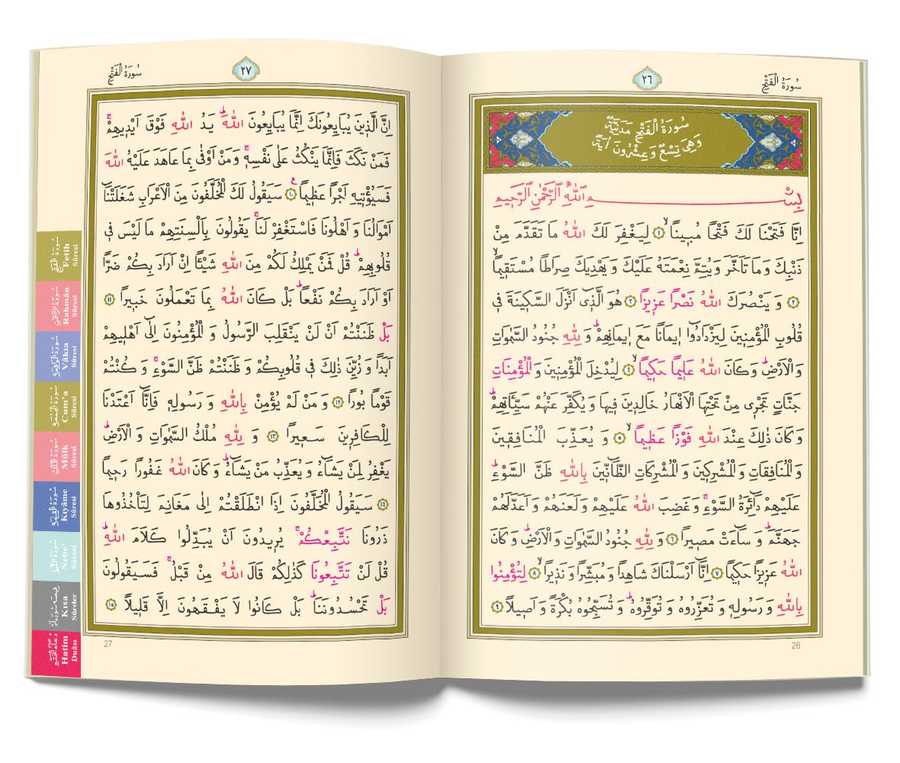 سُورَةُ الْفَتْحِ
٢٦
سُورَةُ الْفَتْحِ مَدَنِيَّةٌ
وَهِيَ تِسْعٌ وَعِشْرُونَ اٰيَةً
بِسْمِ اللّٰهِ الرَّحْمٰنِ الرَّحِيمِ
اِنَّا فَتَحْنَا لَكَ فَتْحًا مُبِينًاۙ ﴿١﴾ لِيَغْفِرَ لَكَ اللّٰهُ مَا تَقَدَّمَ مِنْ
ذَنْبِكَ وَمَا تَاَخَّرَ وَيُتِمَّ نِعْمَتَهُ عَلَيْكَ وَيَهْدِيَكَ صِرَاطًا مُسْتَقِيمًاۙ
﴿٢﴾ وَيَنْصُرَكَ اللّٰهُ نَصْرًا عَزِيزًا ﴿٣﴾ هُوَ الَّذِٓي اَنْزَلَ السَّكِينَةَ فِي
قُلُوبِ الْمُؤْمِنِينَ لِيَزْدَادُٓوا اِيمَانًا مَعَ اِيمَانِهِمْۜ وَلِلّٰهِ جُنُودُ السَّمٰوَاتِ
وَالْاَرْضِۜ وَكَانَ اللّٰهُ عَلِيمًا حَكِيمًاۙ ﴿٤﴾ لِيُدْخِلَ الْمُؤْمِنِينَ وَالْمُؤْمِنَاتِ
جَنَّاتٍ تَجْرِي مِنْ تَحْتِهَا الْاَنْهَارُ خَالِدِينَ فِيهَا وَيُكَفِّرَ عَنْهُمْ سَيِّـَٔاتِهِمْۜ
وَكَانَ ذٰلِكَ عِنْدَ اللّٰهِ فَوْزًا عَظِيمًاۙ ﴿٥﴾ وَيُعَذِّبَ الْمُنَافِقِينَ
وَالْمُنَافِقَاتِ وَالْمُشْرِكِينَ وَالْمُشْرِكَاتِ الظَّٓانِّينَ بِاللّٰهِ ظَنَّ السَّوْءِۜ
عَلَيْهِمْ دَٓائِرَةُ السَّوْءِۚ وَغَضِبَ اللّٰهُ عَلَيْهِمْ وَلَعَنَهُمْ وَاَعَدَّ لَهُمْ
جَهَنَّمَۜ وَسَٓاءَتْ مَصِيرًا ﴿٦﴾ وَلِلّٰهِ جُنُودُ السَّمٰوَاتِ وَالْاَرْضِۜ وَكَانَ
اللّٰهُ عَزِيزًا حَكِيمًا ﴿٧﴾ اِنَّٓا اَرْسَلْنَاكَ شَاهِدًا وَمُبَشِّرًا وَنَذِيرًاۙ ﴿٨﴾ لِتُؤْمِنُوا
بِاللّٰهِ وَرَسُولِهِ وَتُعَزِّرُوهُ وَتُوَقِّرُوهُۜ وَتُسَبِّحُوهُ بُكْرَةً وَاَصِيلًا ﴿٩﴾
26
سُورَةُ الْفَتْحِ
٢٧
اِنَّ الَّذِينَ يُبَايِعُونَكَ اِنَّمَا يُبَايِعُونَ اللّٰهَۜ يَدُ اللّٰهِ فَوْقَ اَيْدِيهِمْۚ
فَمَنْ نَكَثَ فَاِنَّمَا يَنْكُثُ عَلٰى نَفْسِهِۚ وَمَنْ اَوْفٰى بِمَا عَاهَدَ عَلَيْهُ اللّٰهَ
فَسَيُؤْتِيهِ اَجْرًا عَظِيمًا ﴿١٠﴾ سَيَقُولُ لَكَ الْمُخَلَّفُونَ مِنَ الْاَعْرَابِ شَغَلَتْنَٓا
اَمْوَالُنَا وَاَهْلُونَا فَاسْتَغْفِرْ لَنَاۚ يَقُولُونَ بِاَلْسِنَتِهِمْ مَا لَيْسَ فِي
قُلُوبِهِمْۜ قُلْ فَمَنْ يَمْلِكُ لَكُمْ مِنَ اللّٰهِ شَيْـًٔا اِنْ اَرَادَ بِكُمْ ضَرًّا
اَوْ اَرَادَ بِكُمْ نَفْعًاۜ بَلْ كَانَ اللّٰهُ بِمَا تَعْمَلُونَ خَبِيرًا ﴿١١﴾
بَلْ ظَنَنْتُمْ اَنْ لَنْ يَنْقَلِبَ الرَّسُولُ وَالْمُؤْمِنُونَ اِلٰٓى اَهْلِيهِمْ
اَبَدًا وَزُيِّنَ ذٰلِكَ فِي قُلُوبِكُمْ وَظَنَنْتُمْ ظَنَّ السَّوْءِۚ وَكُنْتُمْ
قَوْمًا بُورًا ﴿١٢﴾ وَمَنْ لَمْ يُؤْمِنْ بِاللّٰهِ وَرَسُولِهِ فَاِنَّٓا اَعْتَدْنَا
لِلْكَافِرِينَ سَعِيرًا ﴿١٣﴾ وَلِلّٰهِ مُلْكُ السَّمٰوَاتِ وَالْاَرْضِۜ
يَغْفِرُ لِمَنْ يَشَٓاءُ وَيُعَذِّبُ مَنْ يَشَٓاءُۜ وَكَانَ اللّٰهُ غَفُورًا رَحِيمًا
﴿١٤﴾ سَيَقُولُ الْمُخَلَّفُونَ اِذَا انْطَلَقْتُمْ اِلٰى مَغَانِمَ لِتَأْخُذُوهَا
ذَرُونَا نَتَّبِعْكُمْۚ يُرِيدُونَ اَنْ يُبَدِّلُوا كَلَامَ اللّٰهِۜ
قُلْ لَنْ تَتَّبِعُونَا كَذٰلِكُمْ قَالَ اللّٰهُ مِنْ قَبْلُۚ فَسَيَقُولُونَ
بَلْ تَحْسُدُونَنَاۜ بَلْ كَانُوا لَا يَفْقَهُونَ اِلَّا قَلِيلًا ﴿١٥﴾
27
سُورَةُ الْفَتْحِ
Fetih
Sûresi
Rahmân
Sûresi
Vâkıa
Sûresi
Cum'a
Sûresi
Mülk
Sûresi
Kıyâme
Sûresi
Nebe'
Sûresi
Kısa
Sûreler
Hatim
Duâsı